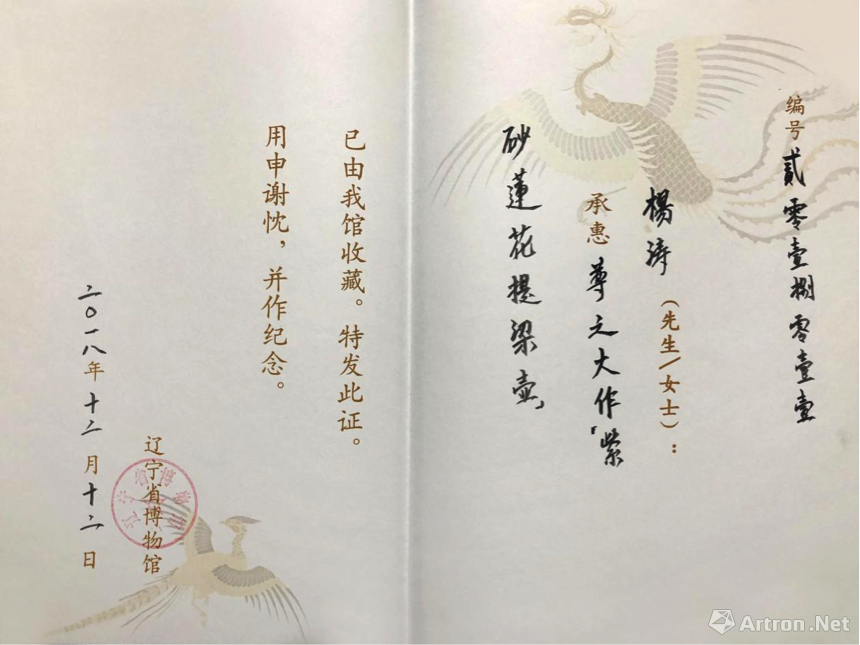 编号贰零壹捌零壹壹
楊涛（先生/女士）：
承惠 尊之大作「紫
砂蓮花提梁壶」
已由我馆收藏。特发此证。
用申谢忱，并作纪念。
辽宁省博物馆
二〇一八年十二月十二日
辽宁省博物馆
Artron.Net